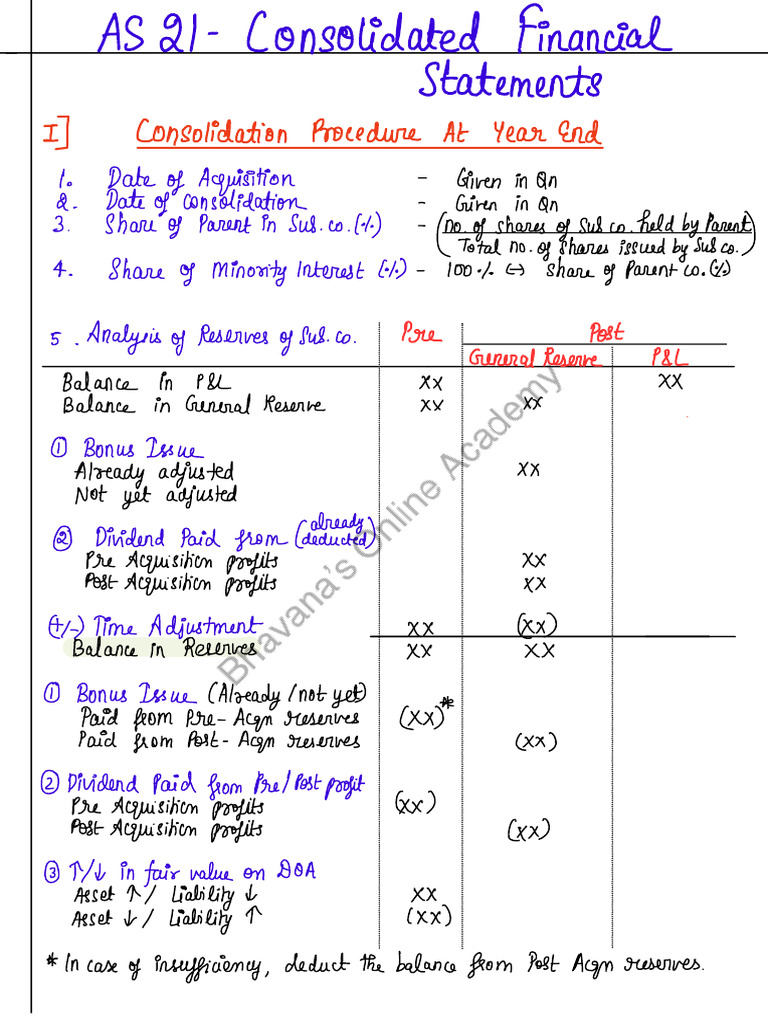 AS 21 - Consolidated Financial
Statements
I] Consolidation Procedure At Year End
1. Date of Acquisition - Given in Qn
2. Date of Consolidation - Given in Qn
3. Share of Parent in Sub. co. (%) - (no. of shares of Sub co. held by Parent / Total no. of shares issued by Sub co.)
4. Share of Minority Interest (%) - 100% ↔ Share of Parent co. (%)
5. Analysis of Reserves of Sub. co. Pre Post
General Reserve P&L
Balance in P&L XX XX
Balance in General Reserve XX XX
① Bonus Issue
Already adjusted XX
Not yet adjusted
② Dividend Paid from (already deducted)
Pre Acquisition profits XX
Post Acquisition profits XX
(+/-) Time Adjustment XX (XX)
Balance in Reserves XX XX
① Bonus Issue (Already/not yet)
Paid from Pre-Acqn reserves (XX)*
Paid from Post-Acqn reserves (XX)
② Dividend Paid from Pre/Post profit
Pre Acquisition profits (XX)
Post Acquisition profits (XX)
③ ↑/↓ in fair value on DOA
Asset ↑ / Liability ↓ XX
Asset ↓ / Liability ↑ (XX)
* In case of insufficiency, deduct the balance from Post Acqn reserves.
Bhavana's Online Academy